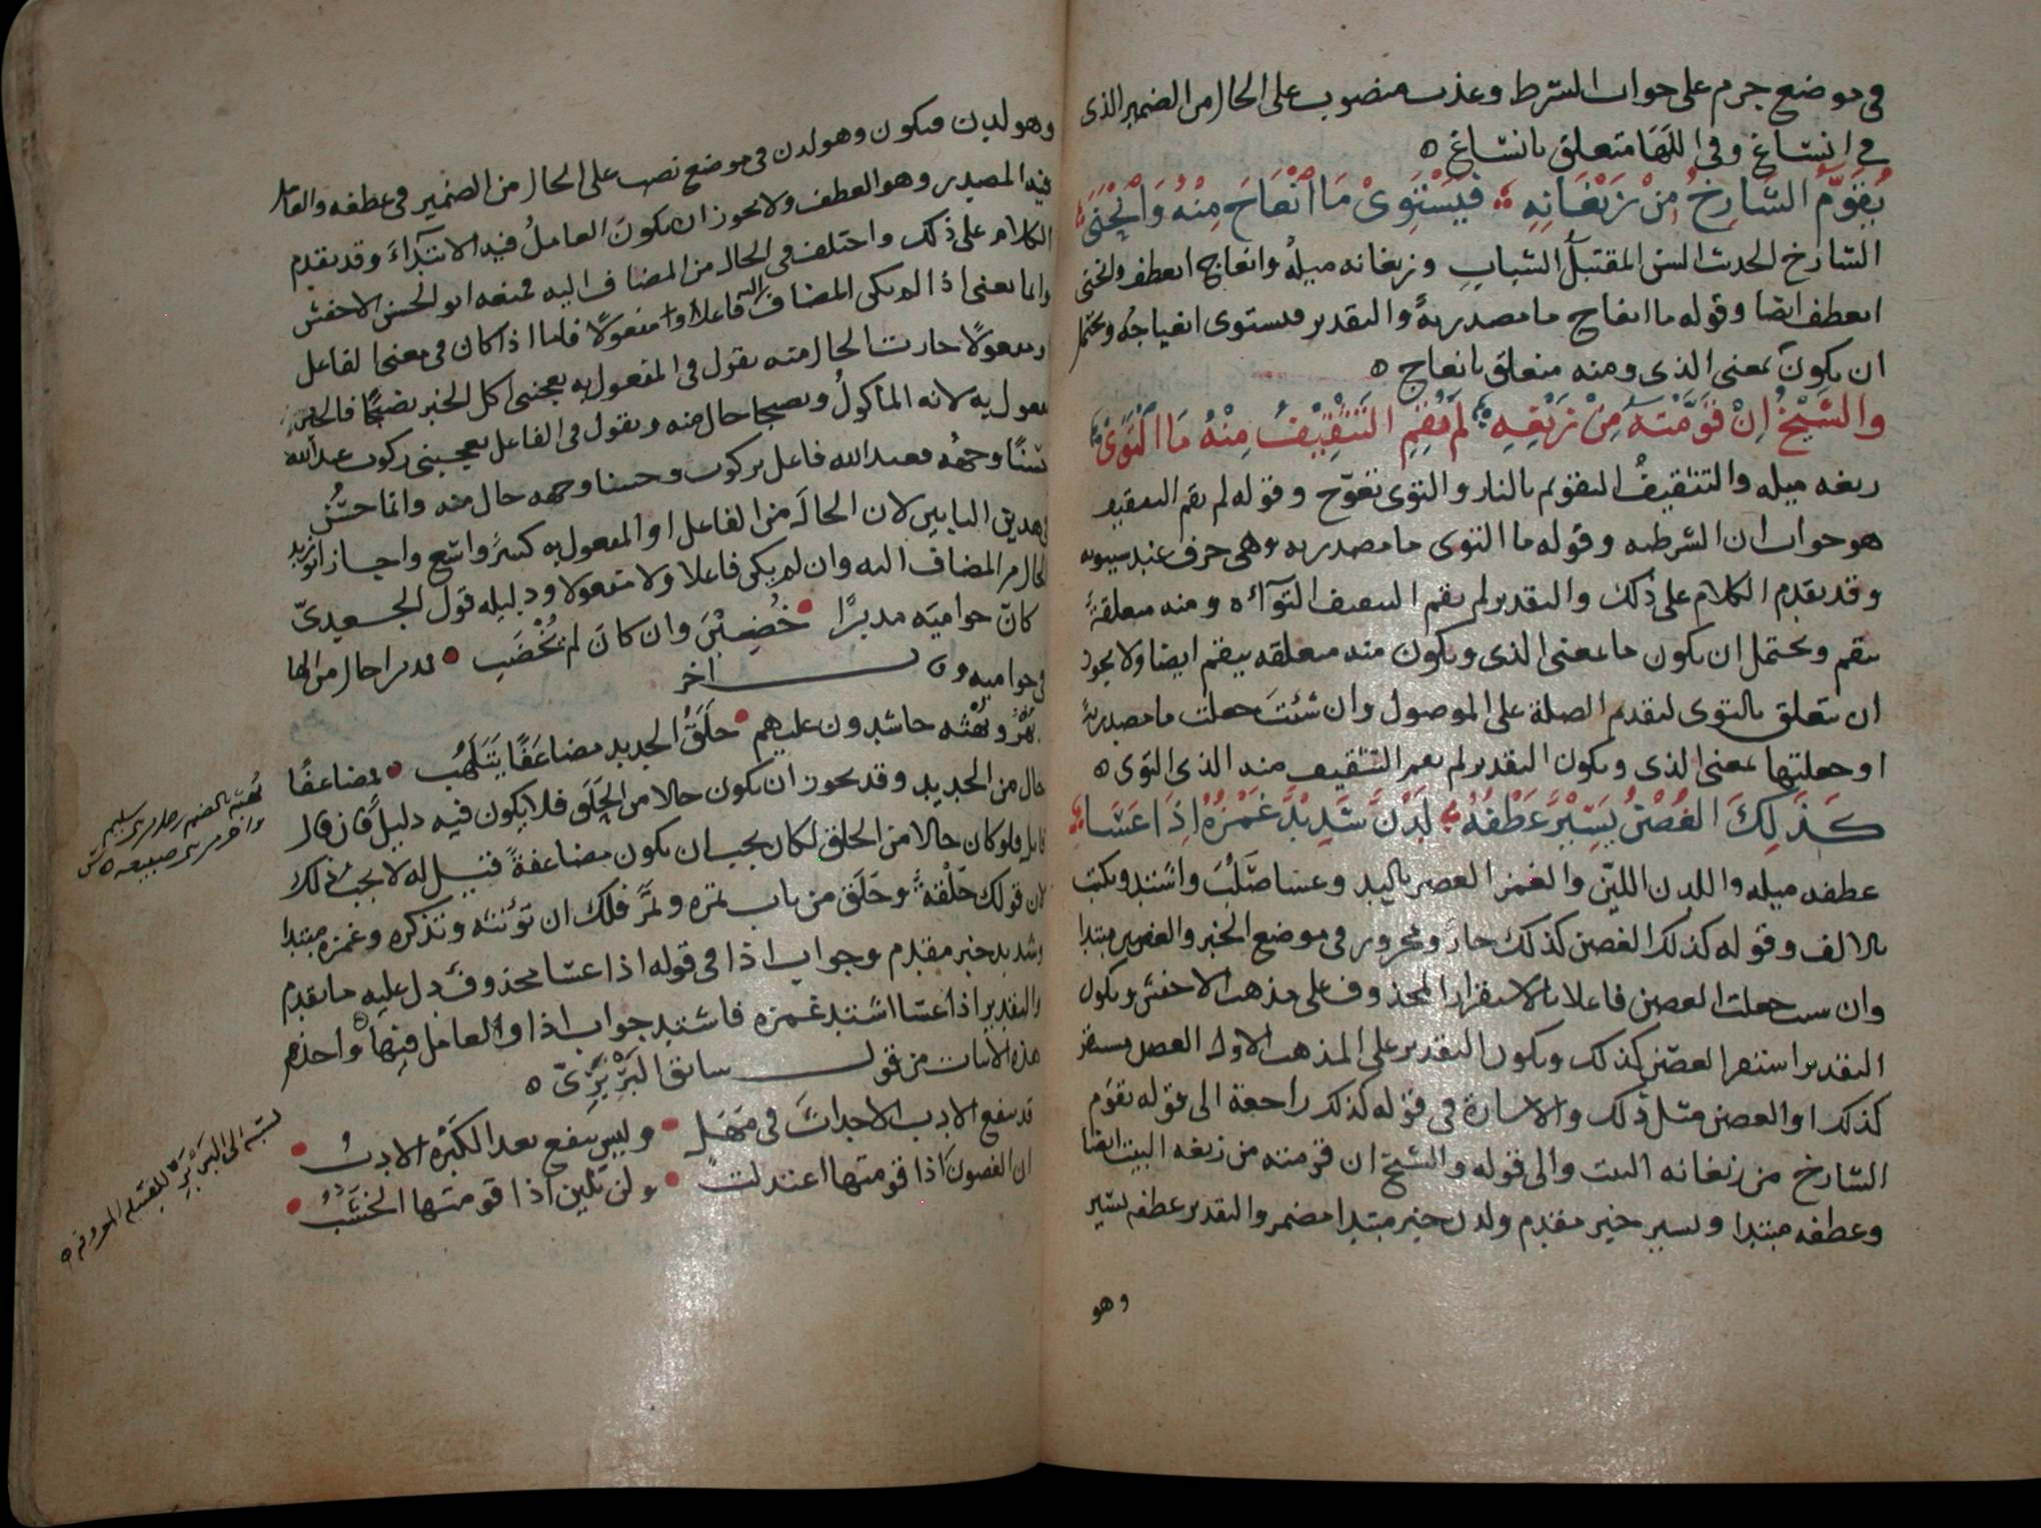 في موضع جزم على جواب الشرط وعذب منصوب على الحال من الضمير الذى
في انساغ وفى اللها متعلق بانساغ ه
يُقَوَّمُ الشَّارِخُ مِنْ زَيَغَانِهِ فَيَسْتَوِىْ مَا انْعَاجَ مِنْهُ وَانْحَنَى
الشارخ الحدث السن المقتبل الشباب وزيغانه ميله وانعاج انعطف وانحنى
انعطف ايضا وقوله ما انعاج ما مصدرية والتقدير فيستوى انعياجه ويحتمل
ان يكون بمعنى الذى ومنه متعلق بانعاج ه
وَالشَّيْخُ اِنْ قَوَّمْتَهُ مِنْ زَيْغِهِ لَمْ يُقِمِ التَّثْقِيْفُ مِنْهُ مَا الْتَوَى
زيغه ميله والتثقيف التقويم بالنار والتوى تعوّج وقوله لم يقم التثقيف
هو جواب ان الشرطية وقوله ما التوى ما مصدرية وهى حرف عند سيبويه
وقد تقدم الكلام على ذلك والتقدير لم يقم التثقيف التوآءه ومنه متعلقة
بيقم ويحتمل ان يكون ما بمعنى الذى ويكون منه متعلقه بيقم ايضا ولا يجوز
ان يتعلق بالتوى لتقديم الصلة على الموصول وان شئت جعلت ما مصدرية
او جعلتها بمعنى الذى ويكون التقدير لم يقم التثقيف منه الذى التوى ه
كَذَلِكَ الغُصْنُ يَسِيْرٌ عَطْفُهُ لَدْنًا شَدِيْدٌ غَمْزُهُ اِذَا عَسَا
عطفه ميله واللدن الليّن والغمز العصر باليد وعسا صَلُبَ واشتد ويكتب
بالالف وقوله كذلك الغصن كذلك جار ومجرور فى موضع الخبر والغصن مبتدا
وان شيت جعلت الغصن فاعلا بالاستقرار المحذوف على مذهب الاخفش ويكون
التقدير استقر الغصن كذلك ويكون التقدير على المذهب الاول الغصن مستقر
كذلك او الغصن مثل ذلك والاشارة فى قوله كذلك راجعة الى قوله يقوم
الشارخ من زيغانه البيت والى قوله والشيخ ان قومته من زيغه البيت ايضا
وعطفه مبتدا ويسير خبر مقدم ولدن خبر مبتدا مضمر والتقدير عطفه يسير
وهو
وهو لدن فيكون وهو لدن فى موضع نصب على الحال من الضمير فى عطفه والعامل
فيه المصدر وهو العطف ولا يجوز ان يكون العامل فيه الابتداء وقد تقدم
الكلام على ذلك واختلف فى الحال من المضاف اليه فمنعه ابو الحسن الاخفش
وانما يعنى اذا لم يكن المضاف اليه فاعلا او مفعولا فاما اذا كان فى معنى الفاعل
او مفعولا جازت الحال منه تقول فى المفعول به يعجبنى اكل الخبز نضيجا فالخبز
مفعول به لانه المأكول ونضيجا حال منه وتقول فى الفاعل يعجبنى ركوب عبد الله
حسنًا وجهه فعبد الله فاعل بركوب وحسنا وجهه حال منه وانما حسُن
فى هذين البابين لان الحال من الفاعل او المفعول به كثير واسّع واجاز ابو زيد
الحال من المضاف اليه وان لم يكن فاعلا ولا مفعولا ودليله قول الجعديّ
كانّ حواميَه مدبرًا خُضِبْنَ وان كانَ لم يُخْضَبِ مدبرا حال من الها
فى حواميه وقـال اخر
بُهْزٌ وبُهْثه حاشدون عليهم حَلَقُ الحديد مضاعَفًا يَتَلَهَّب مضاعفًا
حال من الحديد وقد يجوز ان يكون حالا من الحلق فلا يكون فيه دليل فان قال
قايل فلو كان حالا من الحلق لكان يجب ان يكون مضاعفةً فقيل له لا يجب ذلك
لان قولك حَلْقةٌ وحَلَق من باب تمرة وتمر فلك ان تؤنثه وتذكره وغمزه مبتدا
وشديد خبر مقدم وجواب اذا فى قوله اذا عسا محذوف دل عليه ما تقدم
والتقدير اذا عسا اشتد غمزه فاشتد جواب اذا والعامل فيها واحذهم
هذه الابيات من قول سابق البَرْبَرِىّ ه
قد ينفع الادب الاحداثَ فى مَهَل وليس ينفع بعد الكَبْرة الادبُ
ان الغصون اذا قومتها اعتدلت ولن تلين اذا قومتها الخشَبُ
بُهثه بالضم رجل من بنى سليم
واخر من بنى ضبيعه
نسبة الى البَرْبَر للقبيلة المعروفة ه